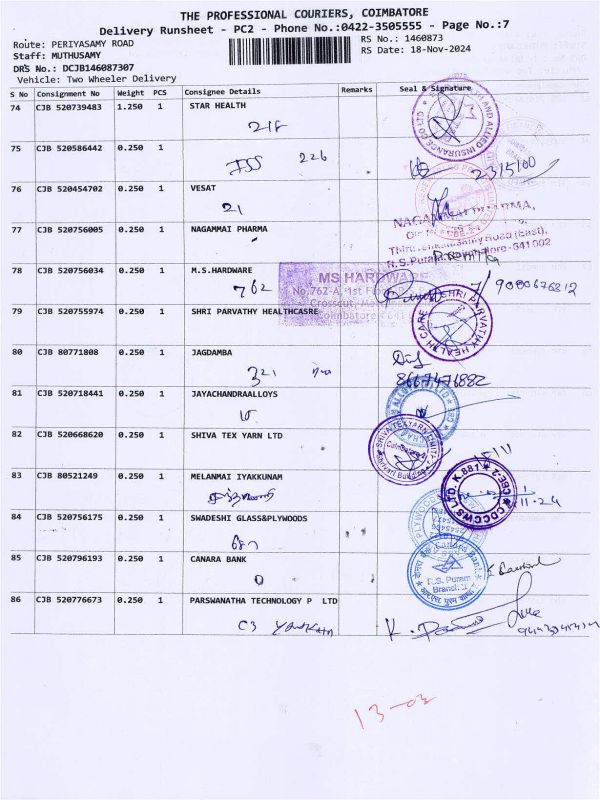 THE PROFESSIONAL COURIERS, COIMBATORE
Delivery Runsheet - PC2 - Phone No.:0422-3505555 - Page No.:7
Route: PERIYASAMY ROAD
RS No.: 1460873
Staff: MUTHUSAMY
RS Date: 18-Nov-2024
DRS No.: DCJB146087307
Vehicle: Two Wheeler Delivery
S No Consignment No Weight PCS Consignee Details Remarks Seal & Signature
74 CJB 520739483 1.250 1 STAR HEALTH
218
75 CJB 520586442 0.250 1
JSS 226
76 CJB 520454702 0.250 1 VESAT
21
77 CJB 520756005 0.250 1 NAGAMMAI PHARMA
NAGAMMAI PHARMA,
R.S. Puram, Coimbatore-641 002
78 CJB 520756034 0.250 1 M.S.HARDWARE
762
MS HARDWARE
No.762-A, 1st F
Crosscut
Coimbatore
9080676212
79 CJB 520755974 0.250 1 SHRI PARVATHY HEALTHCASRE
SHRI PARVATHY HEALTH CARE
80 CJB 80771808 0.250 1 JAGDAMBA
321
8667476882
81 CJB 520718441 0.250 1 JAYACHANDRAALLOYS
10
82 CJB 520668620 0.250 1 SHIVA TEX YARN LTD
SHIVA TEX YARN LIMITED
83 CJB 80521249 1 MELANMAI IYAKKUNAM
0.250
CDCCWS LTD. K.881
CBE-2
84 CJB 520756175 0.250 1 SWADESHI GLASS&PLYWOODS
687
85 CJB 520796193 0.250 1 CANARA BANK
0
R.S. Puram
Branch
86 CJB 520776673 0.250 1 PARSWANATHA TECHNOLOGY P LTD
C3
13-03